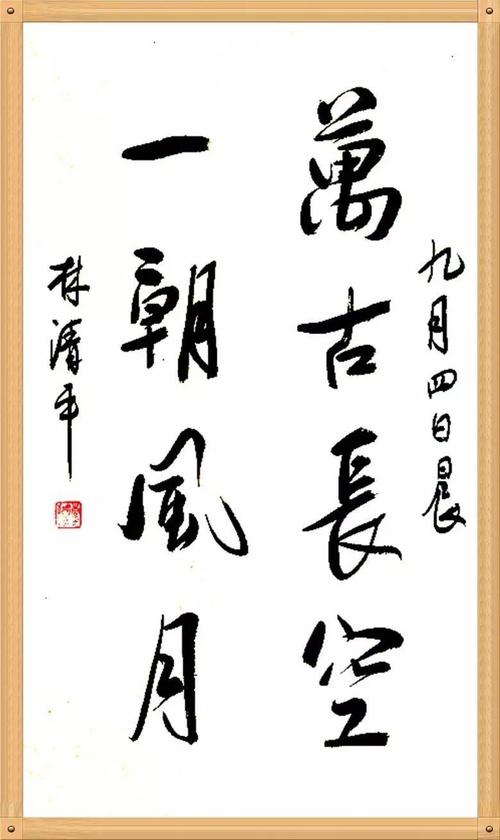 九月四日晨
萬古長空
一朝風月
林清平